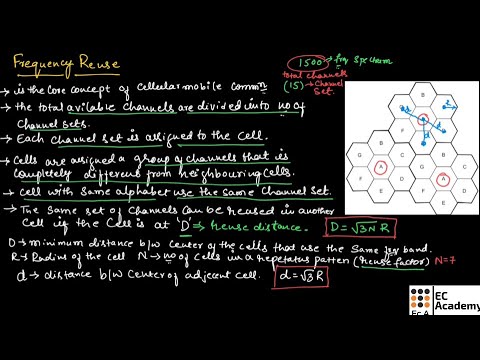 Frequency Reuse
1500 → freq spectrum
total channels
(15) → Channel Set.
→ is the core concept of Cellular mobile commn
→ the total avilable channels are divided into no of
Channel sets.
→ Each channel set is assigned to the cell.
→ Cells are assigned a group of channels that is
completely different from neighbouring cells.
→ Cell with same alphabet use the same channel set.
→ The same set of channels can be reused in another
cell if the cell is at 'D' → reuse distance. D = √3N R
D → minimum distance b/w center of the cells that use the same freq band.
R → Radius of the cell N → no of cells in a repetatus patten (reuse factor) N=7
d → distance b/w center of adjecent cell. d = √3 R
B
G
A
F
d
B
G
C
A
F
D
E
B
G
C
A
F
D
E
EC
Academy